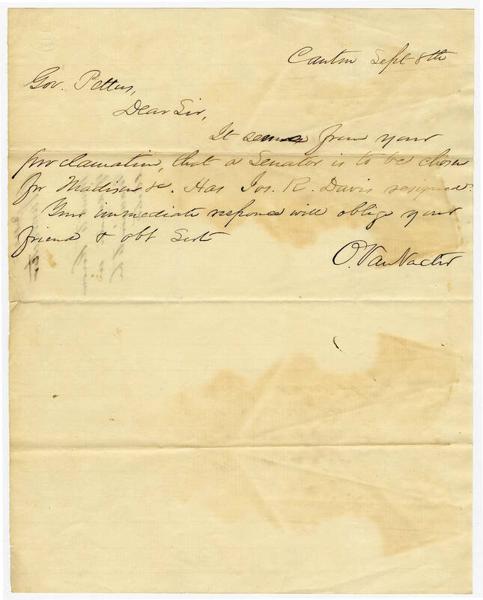 Canton Sept 8th
Gov. Pettus,
Dear Sir,
It seems from your
proclamation, that a Senator is to be chosen
for Madison &c. Has Jos. R. Davis resigned?
Your immediate response will oblige your
friend & obt Svt
O. Van Vactor